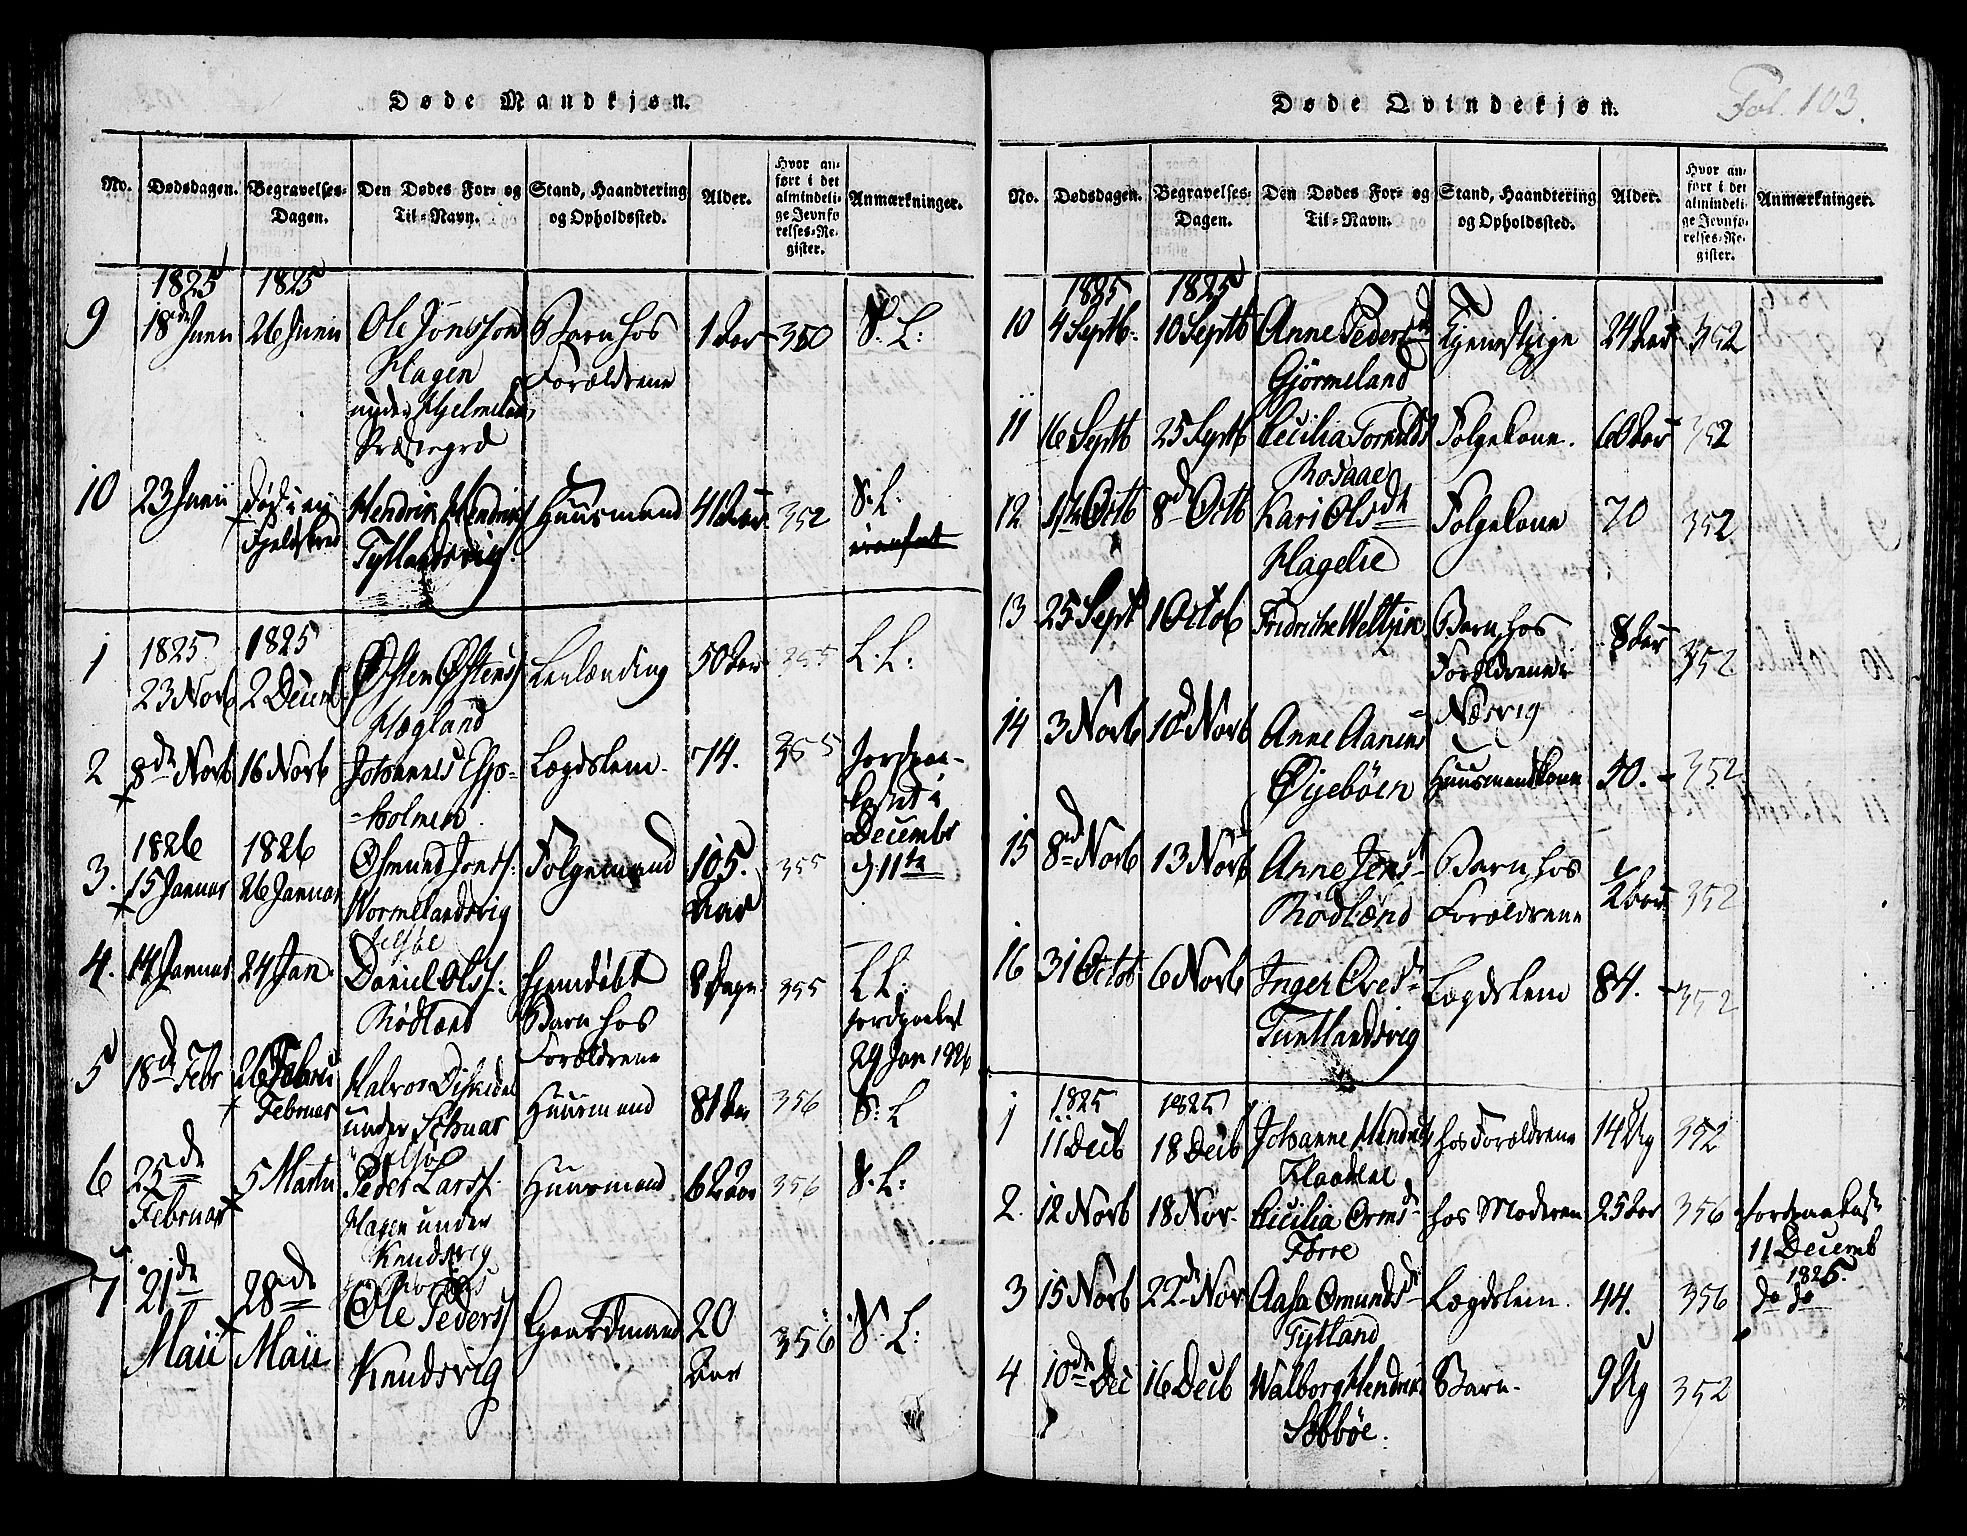 Døde Mandkjøn.
No. Dødsdagen. Begravelses-Dagen. Den Dødes For- og Til-Navn. Stand, Haandtering og Opholdssted. Alder. Hvor anført i det almindelige Jevnførelses-Register. Anmærkninger.
1825 1825
9 18de Junii 26 Junii Ole Jonsson Barn hos 1 Aar 350 S. L:
Hagen Forældrene
under Hjelmeland
Præstegrd
10 23 Junii død i en Hendrik Hendriks Huusmand 41 Aar 352 S. L.
Fjeldskred Tytlandsvig
1 1825 1825
23 Novb 2 Decemb Østen Østens Leilænding 50 Aar 355 L. L:
Hægland
2 8de Novb 16 Novb Johannes Espe- Lægdslem 74. 355 Jordpaa-
holmen kastet i
Decembr
d. 11te
1826 1826
3. 15 Januar 26 Januar Osmund Jonss: Folgemand 105. Aar 355
Wormelandsvig
4. 14 Januar 24 Jan. Daniel Olss: Hjemdøbt 8 Dage 355 L L:
Rødland Barn hos jordpaakast
Forældrene 29 Jan 1826
5 18de Febr 26 Februar Halvor Diskedal Huusmand 81 Aar 356 S: L
under
6 25de Februar 5 Martii Peder Larss. Huusmand 62 Aar 356 S. L:
Hagen under
Knudsvig
7 21de Maii 28de Maii Ole Peders Gaardmand 20 Aar 356 S. L:
Knudsvig
Døde Qvindekjøn.
Fol. 103.
No. Dødsdagen. Begravelses-Dagen. Den Dødes For- og Til-Navn. Stand, Haandtering og Opholdssted. Alder. Hvor anført i det almindelige Jevnførelses-Register. Anmærkninger.
1825 1825
10 4 Septb: 10 Septb Anne Pedersd Tjenestpige 24 Aar 352
Gjørmeland
11 16 Septb 25 Septb Cecilia Tormods Folgekone. 60 Aar 352
Rosaae
12 1te Octb 8de Octb Kari Olsdt Folgekone 70 352
Hagelie
13 25 Sept 1 Octob Fridriche Weltzin Barn hos 8 Aar 352
Forældrene i
Næsvig
14 3 Novb 10d Novb Anne Aanens Huusmandskone 50. 352
Øijebøen
15 8de Novb 13 Novb Anne Jensd Barn hos 1/2 Aar 352
Rødland Forældrene
16 31 Octob 6 Novb Inger Oresd Lægdslem 84. 352
Tuntlandsvig
1825 1825
1 11 Decb 18 Decb Johanne Hendriks hos Forældrene 14 Ug 352
2. 12 Novb 18 Nov. Cicilia Ormsd hos Moderen 25 Aar 356 jordpaakast
Tørre 11 Decemb
1825.
3 15 Novb 22de Nov Aasa Omundsd Lægdslem. 44. 356 do do
Tytland
4 10de Dec 16 Decb Walborg Hendriks Barn. 9 Ug 352
Sæbbøe.